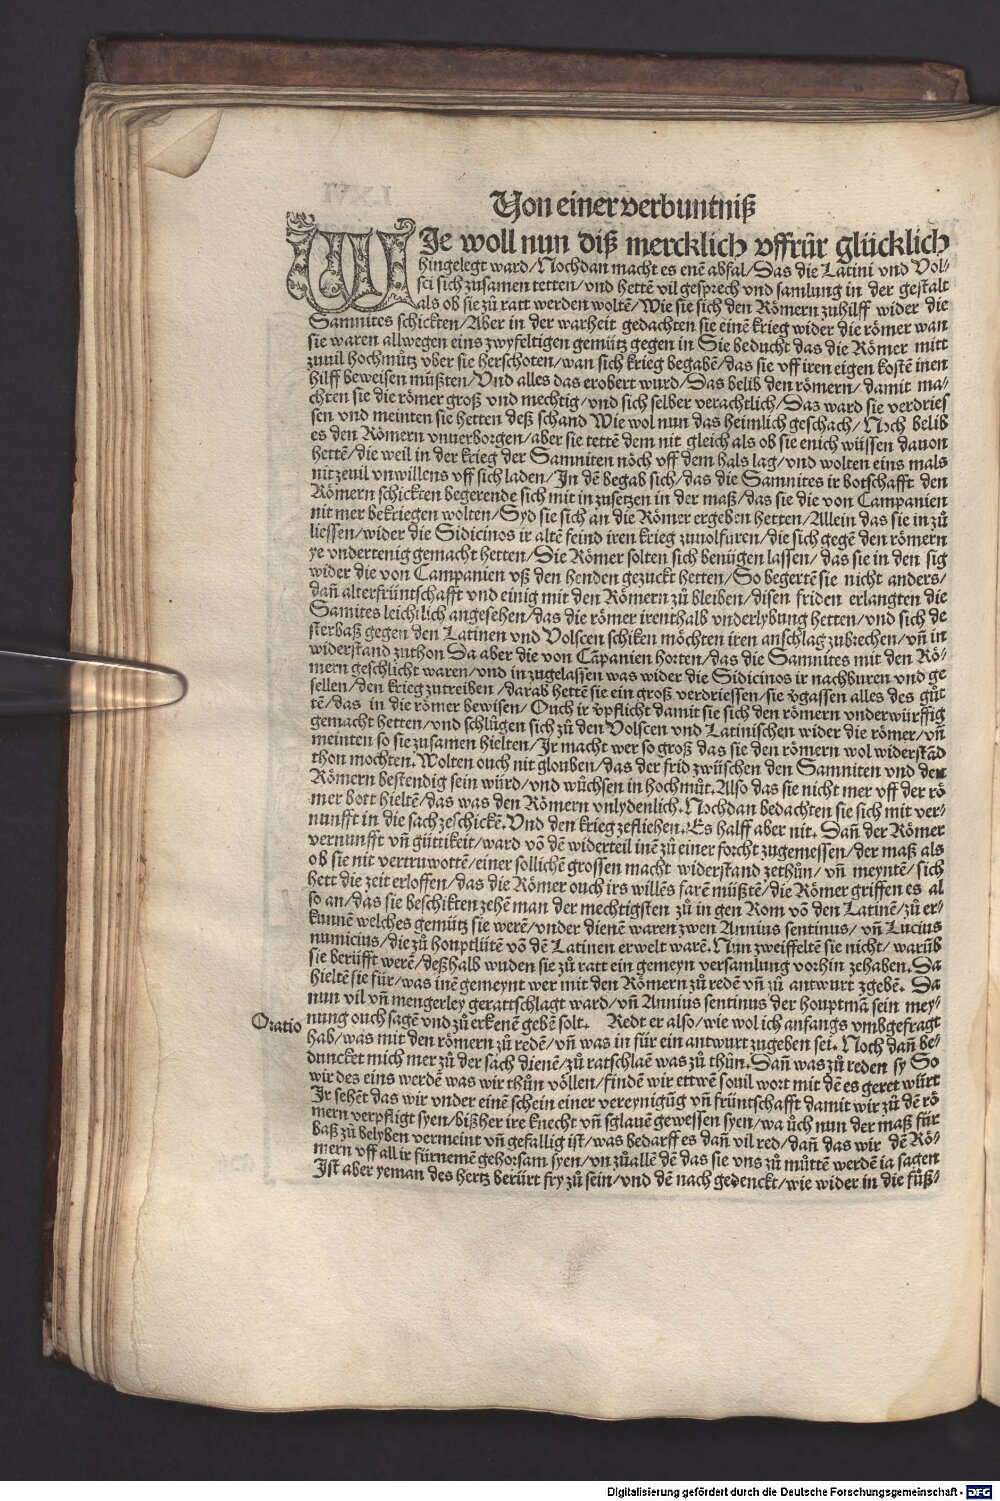 Von einer verbuntniß
WJe woll nun diß mercklich vffrůr glücklich
hingelegt ward/Nochdan macht es enē abfal/Das die Latini vnd Vol-
sci sich zusamen tetten/vnd hettē vil gesprech vnd samlung in der gestalt
als ob sie zů ratt werden woltē/Wie sie sich den Römern zuhilff wider die
Samnites schickten/Aber in der warheit gedachten sie einē krieg wider die römer wan
sie waren allwegen eins zwyfeltigen gemütz gegen in Sie beducht das die Römer mitt
zuuil hochmůtz vber sie herschoten/wan sich krieg begabē/das sie vff iren eigen kostē inen
hilff beweisen müßten/Vnd alles das erobert wurd/Das belib den römern/damit ma-
chten sie die römer groß vnd mechtig/vnd sich selber verachtlich/Das ward sie verdries
sen vnd meinten sie hetten deß schand Wie wol nun das heimlich geschach/Noch belib
es den Römern vnuerborgen/aber sie tettē dem nit gleich als ob sie enich wüssen dauon
hettē/die weil in der krieg der Samniten nöch vff dem hals lag/vnd wolten eins mals
nit zeuil vnwillens vff sich laden/Jn dē begab sich/das die Samnites ir botschafft den
Römern schickten begerende sich mit in zusetzen in der maß/das sie die von Campanien
nit mer bekriegen wolten/Syd sie sich an die Römer ergeben hetten/Allein das sie in zů
liessen/wider die Sidicinos ir altē feind iren krieg zuuolfüren/die sich gegē den römern
ye vndertenig gemacht hetten/Die Römer solten sich benügen lassen/das sie in den sig
wider die von Campanien vß den henden gezuckt hetten/So begertē sie nicht anders/
dañ alterfrüntschafft vnd einig mit den Römern zů bleiben/disen friden erlangten die
Samites leichtlich angesehen/das die römer irenthalb vnderlybung hetten/vnd sich de
sterbaß gegen den Latinen vnd Volscen schiken möchten iren anschlag zubrechen/vñ in
widerstand zuthon Da aber die von Cāpanien horten/das die Samnites mit den Rö-
mern geschlicht waren/vnd in zugelassen was wider die Sidicinos ir nachburen vnd ge
sellen/den krieg zutreiben/darab hettē sie ein groß verdriessen/sie v̄gassen alles des gůt
tē/das in die römer bewisen/Ouch ir v̄pflicht damit sie sich den römern vnderwürffig
gemacht hetten/vnd schlůgen sich zů den Volscen vnd Latinischen wider die römer/vñ
meinten so sie zusamen hielten/Jr macht wer so groß das sie den römern wol widerstād
thon mochten. Wolten ouch nit glouben/das der frid zwüschen den Samniten vnd den
Römern bestendig sein würd/vnd wůchsen in hochmůt. Also das sie nicht mer vff der rö
mer bott hieltē/das was den Römern vnlydenlich. Nochdan bedachten sie sich mit ver-
nunfft in die sach zeschickē. Vnd den krieg zefliehen. Es halff aber nit. Dañ der Römer
vernunfft vñ güttikeit/ward vō dē widerteil inē zů einer forcht zugemessen/der maß als
ob sie nit vertruwottē/einer sollichē grossen macht widerstand zethůn/vñ meyntē/sich
hett die zeit erloffen/das die Römer ouch irs willēs farē müßtē/die Römer griffen es al
so an/das sie beschikten zehē man der mechtigsten zů in gen Rom vō den Latinē/zů er-
kunnē welches gemütz sie werē/vnder dienē waren zwen Annius sentinus/vñ Lucius
numicius/die zů houptlütē vō dē Latinen erwelt warē. Nun zweiffeltē sie nicht/warūb
sie berüfft werē/deßhalb wuden sie zů ratt ein gemeyn versamlung vorhin zehaben. Da
hieltē sie für/was inē gemeynt wer mit den Römern zů redē vñ zů antwurt zgebē. Da
nun vil vñ mengerley gerattschlagt ward/vñ Annius sentinus der houptmā sein mey-
Oratio nung ouch sagē vnd zů erkenē gebē solt. Redt er also/wie wol ich anfangs vmbgefragt
hab/was mit den römern zů redē/vñ was in für ein antwurt zugeben sei. Noch dañ be-
duncket mich mer zů der sach dienē/zů ratschlaē was zů thůn. Dañ was zů reden sy So
wir des eins werdē was wir thůn völlen/findē wir ettwē souil wort mit dē es geret würt
Jr sehēt das wir vnder einē schein einer vereynigūg vñ früntschafft damit wir zů dē rö
mern verpfligt syen/bißher ire knecht vñ sglauē gewessen syen/wa ůch nun der maß für
baß zů belyben vermeint vñ gefallig ist/was bedarff es dañ vil red/dañ das wir dē Rö-
mern vff all ir fürnemē gehorsam syen/vn zůallē dē das sie vns zů můttē werdē ia sagen
Jst aber yeman des hertz berürt fry zů sein/vnd dē nach gedenckt/wie wider in die fůß-
Digitalisierung gefördert durch die Deutsche Forschungsgemeinschaft - DFG